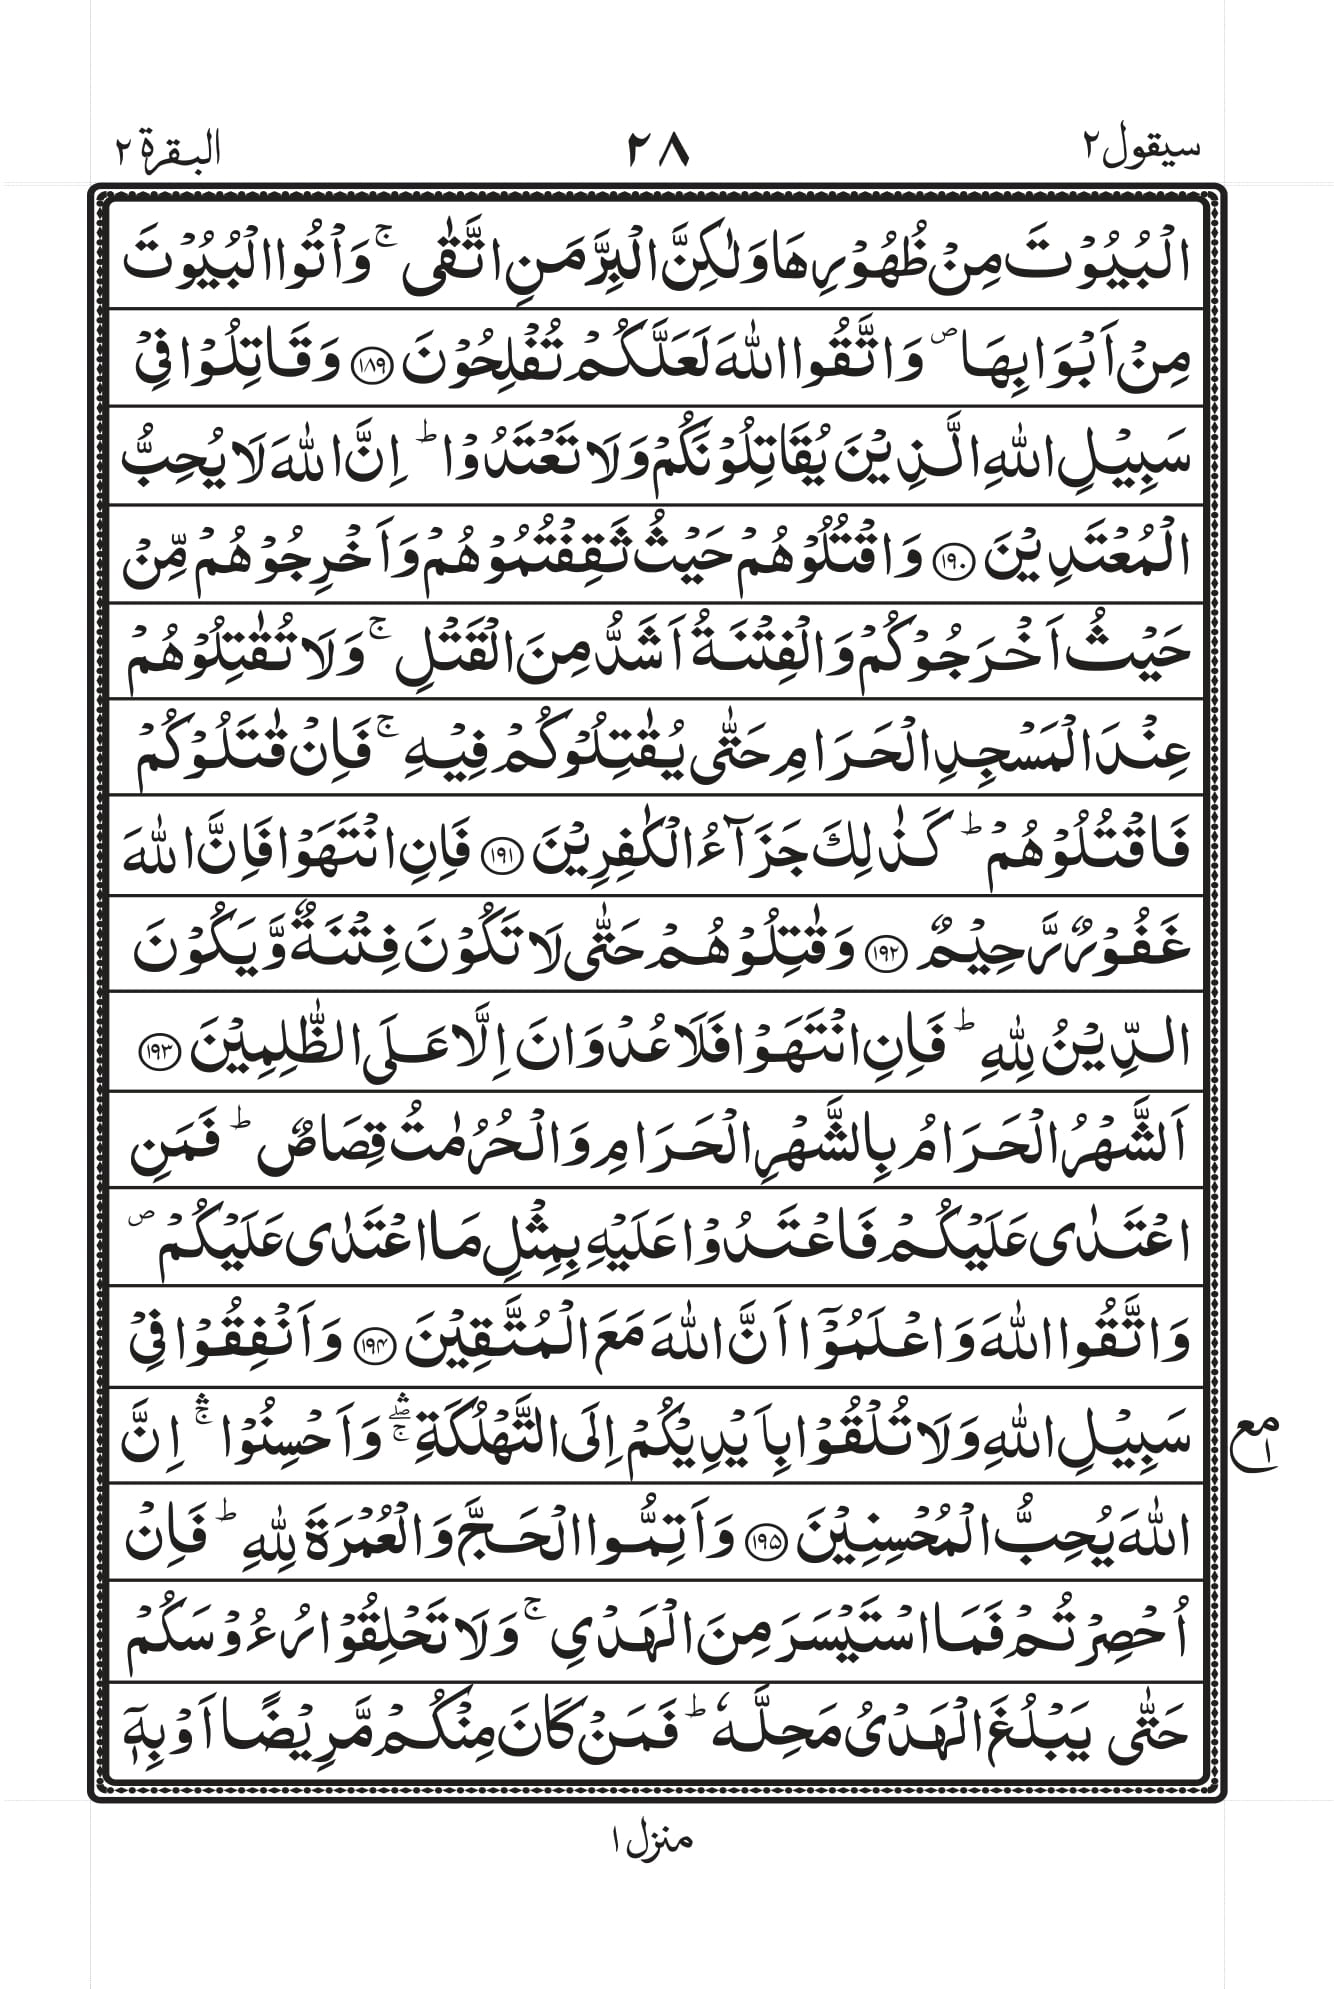 سيقول ٢ ٢٨ البقرة ٢
الۡبُيُوۡتَ مِنۡ ظُهُوۡرِهَا وَلٰكِنَّ الۡبِرَّ مَنِ اتَّقٰى ۚ وَاۡتُوا الۡبُيُوۡتَ
مِنۡ اَبۡوَابِهَا ۖ وَاتَّقُوا اللّٰهَ لَعَلَّكُمۡ تُفۡلِحُوۡنَ ﴿۱۸۹﴾ وَقَاتِلُوۡا فِىۡ
سَبِيۡلِ اللّٰهِ الَّذِيۡنَ يُقَاتِلُوۡنَكُمۡ وَلَا تَعۡتَدُوۡا ؕ اِنَّ اللّٰهَ لَا يُحِبُّ
الۡمُعۡتَدِيۡنَ ﴿۱۹۰﴾ وَاقۡتُلُوۡهُمۡ حَيۡثُ ثَقِفۡتُمُوۡهُمۡ وَاَخۡرِجُوۡهُمۡ مِّنۡ
حَيۡثُ اَخۡرَجُوۡكُمۡ وَالۡفِتۡنَةُ اَشَدُّ مِنَ الۡقَتۡلِ ۚ وَلَا تُقٰتِلُوۡهُمۡ
عِنۡدَ الۡمَسۡجِدِ الۡحَرَامِ حَتّٰى يُقٰتِلُوۡكُمۡ فِيۡهِ ۚ فَاِنۡ قٰتَلُوۡكُمۡ
فَاقۡتُلُوۡهُمۡ ؕ كَذٰلِكَ جَزَآءُ الۡكٰفِرِيۡنَ ﴿۱۹۱﴾ فَاِنِ انۡتَهَوۡا فَاِنَّ اللّٰهَ
غَفُوۡرٌ رَّحِيۡمٌ ﴿۱۹۲﴾ وَقٰتِلُوۡهُمۡ حَتّٰى لَا تَكُوۡنَ فِتۡنَةٌ وَّيَكُوۡنَ
الدِّيۡنُ لِلّٰهِ ؕ فَاِنِ انۡتَهَوۡا فَلَا عُدۡوَانَ اِلَّا عَلَى الظّٰلِمِيۡنَ ﴿۱۹۳﴾
اَلشَّهۡرُ الۡحَرَامُ بِالشَّهۡرِ الۡحَرَامِ وَالۡحُرُمٰتُ قِصَاصٌ ؕ فَمَنِ
اعۡتَدٰى عَلَيۡكُمۡ فَاعۡتَدُوۡا عَلَيۡهِ بِمِثۡلِ مَا اعۡتَدٰى عَلَيۡكُمۡ ۖ
وَاتَّقُوا اللّٰهَ وَاعۡلَمُوۡٓا اَنَّ اللّٰهَ مَعَ الۡمُتَّقِيۡنَ ﴿۱۹۴﴾ وَاَنۡفِقُوۡا فِىۡ
سَبِيۡلِ اللّٰهِ وَلَا تُلۡقُوۡا بِاَيۡدِيۡكُمۡ اِلَى التَّهۡلُكَةِ ۖ ۛۚ وَاَحۡسِنُوۡا ۛۚ اِنَّ
مع ١
اللّٰهَ يُحِبُّ الۡمُحۡسِنِيۡنَ ﴿۱۹۵﴾ وَاَتِمُّوا الۡحَجَّ وَالۡعُمۡرَةَ لِلّٰهِ ؕ فَاِنۡ
اُحۡصِرۡتُمۡ فَمَا اسۡتَيۡسَرَ مِنَ الۡهَدۡىِ ۚ وَلَا تَحۡلِقُوۡا رُءُوۡسَكُمۡ
حَتّٰى يَبۡلُغَ الۡهَدۡىُ مَحِلَّهٗ ؕ فَمَنۡ كَانَ مِنۡكُمۡ مَّرِيۡضًا اَوۡ بِهٖۤ
منزل ١